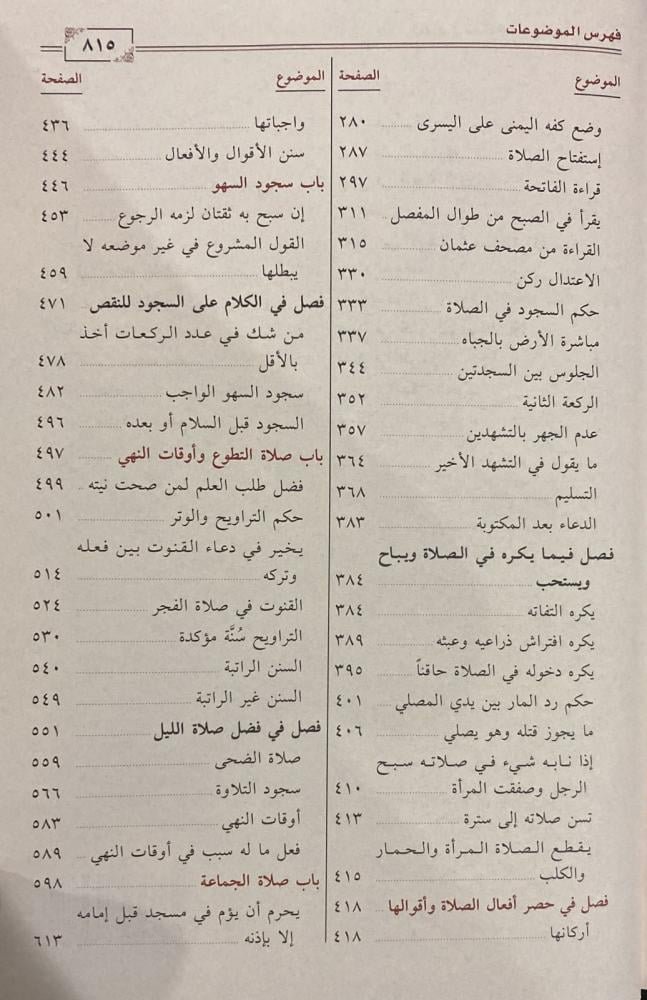 فهرس الموضوعات
٨١٥
الموضوع الصفحة
وضع كفه اليمنى على اليسرى ٢٨٠
إستفتاح الصلاة ٢٨٧
قراءة الفاتحة ٢٩٧
يقرأ في الصبح من طوال المفصل ٣١١
القراءة من مصحف عثمان ٣١٥
الاعتدال ركن ٣٣٠
حكم السجود في الصلاة ٣٣٣
مباشرة الأرض بالجباه ٣٣٧
الجلوس بين السجدتين ٣٤٤
الركعة الثانية ٣٥٢
عدم الجهر بالتشهدين ٣٥٧
ما يقول في التشهد الأخير ٣٦٤
التسليم ٣٦٨
الدعاء بعد المكتوبة ٣٨٣
فصل فيما يكره في الصلاة ويباح
ويستحب ٣٨٤
يكره التفاته ٣٨٤
يكره افتراش ذراعيه وعبثه ٣٨٩
يكره دخوله في الصلاة حاقناً ٣٩٥
حكم رد المار بين يدي المصلي ٤٠١
ما يجوز قتله وهو يصلي ٤٠٦
إذا نابه شيء في صلاته سبح
الرجل وصفقت المرأة ٤١٠
تسن صلاته إلى سترة ٤١٣
يقطع الصلاة المرأة والحمار
والكلب ٤١٥
فصل في حصر أفعال الصلاة وأقوالها ٤١٨
أركانها ٤١٨
الموضوع الصفحة
واجباتها ٤٣٦
سنن الأقوال والأفعال ٤٤٤
باب سجود السهو ٤٤٦
إن سبح به ثقتان لزمه الرجوع ٤٥٣
القول المشروع في غير موضعه لا
يبطلها ٤٥٩
فصل في الكلام على السجود للنقص ٤٧١
من شك في عدد الركعات أخذ
بالأقل ٤٧٨
سجود السهو الواجب ٤٨٢
السجود قبل السلام أو بعده ٤٩٦
باب صلاة التطوع وأوقات النهي ٤٩٧
فضل طلب العلم لمن صحت نيته ٤٩٩
حكم التراويح والوتر ٥٠١
يخير في دعاء القنوت بين فعله
وتركه ٥١٤
القنوت في صلاة الفجر ٥٢٤
التراويح سُنَّة مؤكدة ٥٣٠
السنن الراتبة ٥٤٠
السنن غير الراتبة ٥٤٩
فصل في فضل صلاة الليل ٥٥١
صلاة الضحى ٥٥٩
سجود التلاوة ٥٦٦
أوقات النهي ٥٨٣
فعل ما له سبب في أوقات النهي ٥٨٩
باب صلاة الجماعة ٥٩٨
يحرم أن يؤم في مسجد قبل إمامه
إلا بإذنه ٦١٣